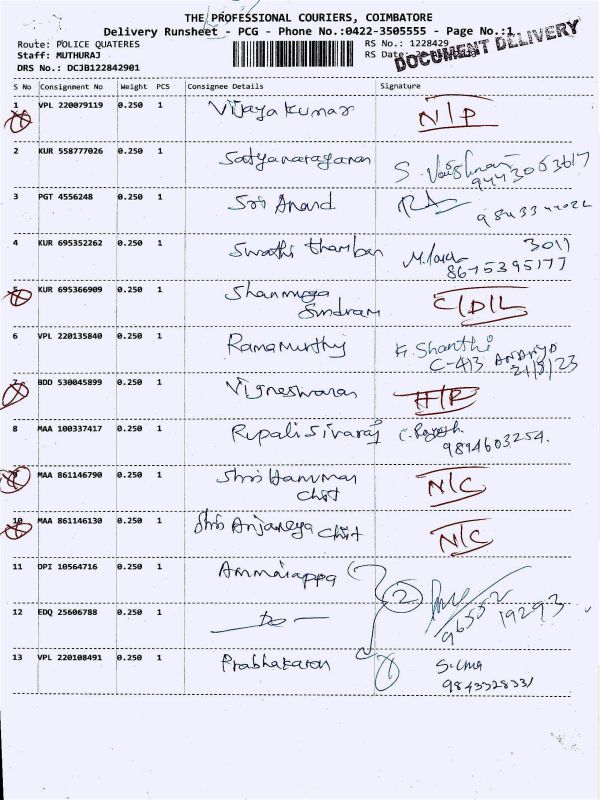 THE PROFESSIONAL COURIERS, COIMBATORE
Delivery Runsheet - PCG - Phone No.:0422-3505555 - Page No.:1
Route: POLICE QUATERES
RS No.: 1228429
Staff: MUTHURAJ
RS Date:
DOCUMENT DELIVERY
DRS No.: DCJB122842901
S No Consignment No Weight PCS Consignee Details Signature
1 VPL 220079119 0.250 1 Vijaya Kumar N/P
2 KUR 558777026 0.250 1 Satyanarayanan S. Vaishnavi
9443063617
3 PGT 4556248 0.250 1 Sri Anand
4 KUR 695352262 0.250 1 Swathi Thamban 3011
8675395177
5 KUR 695366909 0.250 1 Shanmuga C/D/L
Sundram
6 VPL 220135840 0.250 1 Ramamurthy K. Shanthi
C-413
21/8/23
7 BDD 530045899 0.250 1 Vigneswaran
8 MAA 100337417 0.250 1 Rupali Sivaraj C. Rajesh
9894603254.
9 MAA 861146790 0.250 1 Shri Hanuman N/C
Chit
10 MAA 861146130 0.250 1 Shri Anjaneya Chit N/C
11 OPI 10564716 1 Ammaiappa
2
12 EDQ 25606788 0.250 1 — Do — 96552 19293
13 VPL 220108491 0.250 1 Prabhakaran
9843328331